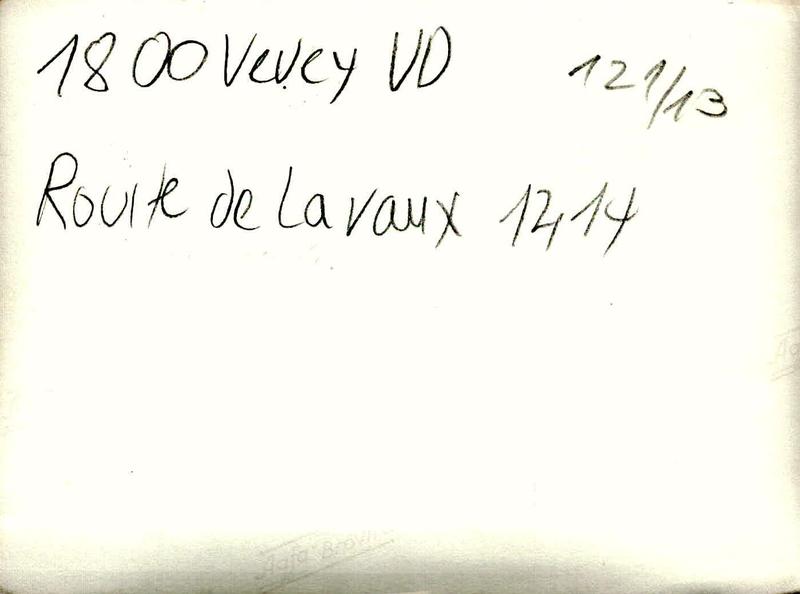 1800 Vevey VD 121/13
Route de Lavaux 12,14
Agfa Brovi